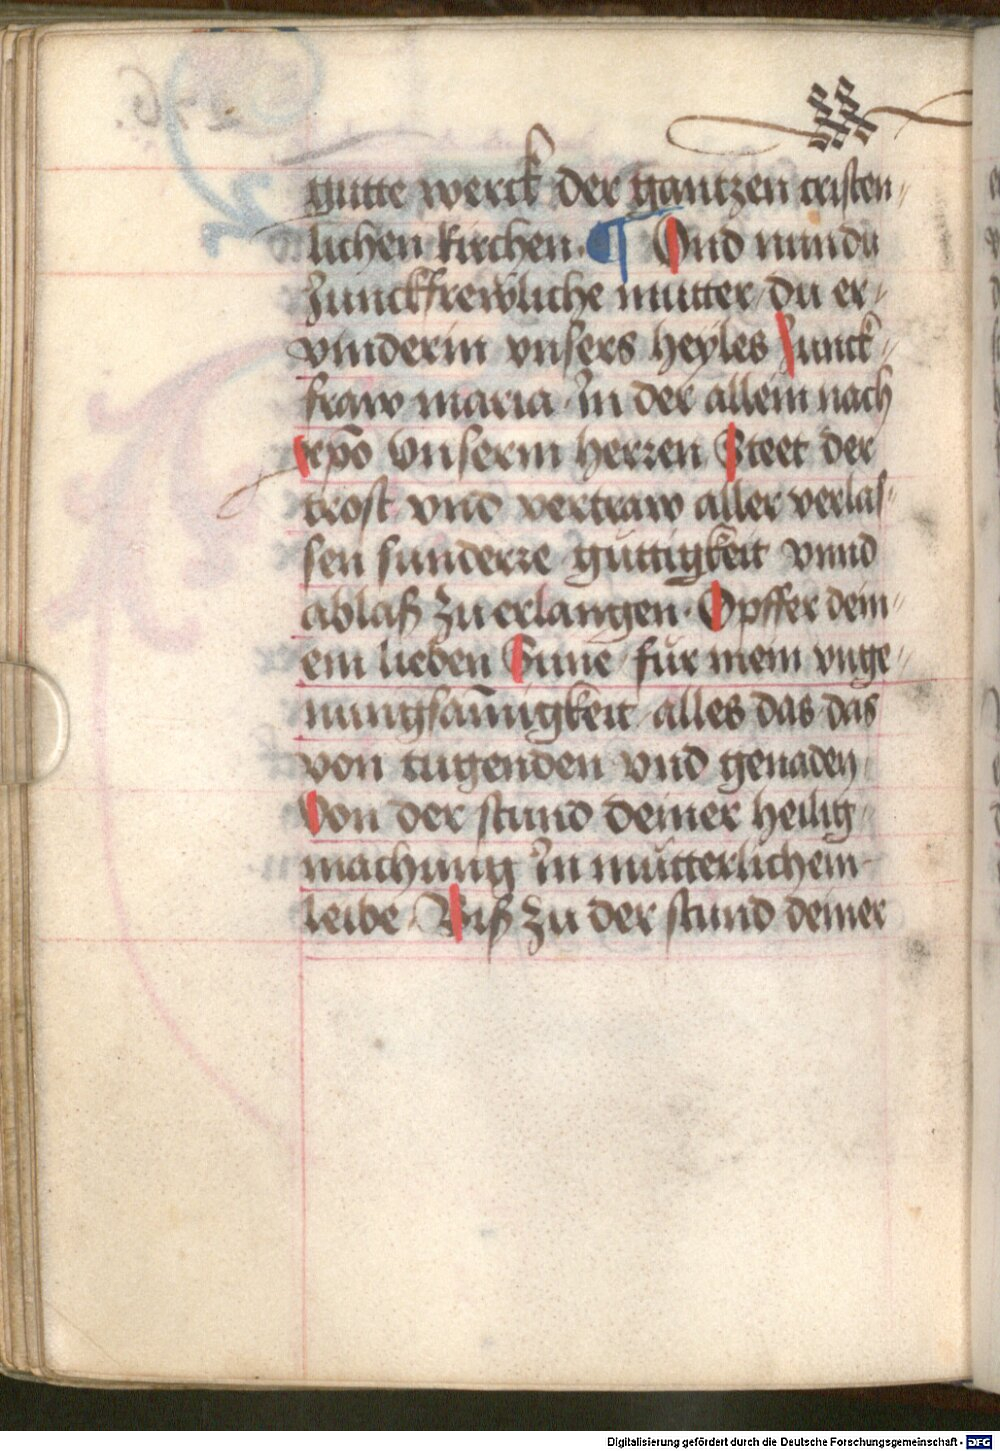 gutte werck der gantzen cristen-
lichen kirchen. ¶ Vnd nun du
Junckfrewliche mutter / du er-
vinderin vnsers heyles Junck-
fraw maria. In der allein nach
xp̄o vnserm herren Steet der
trost vnd vertraw aller verlas-
sen sunderre guttigkeit vnnd
ablaß zu erlangen. Opffer dein-
em lieben Sune / für mein vnge-
nungsam̄igkeit alles das das
von tugenden vnd genaden
Von der stund deiner heilig
machung In mütterlichem
leibe Biß zu der stund deiner
Digitalisierung gefördert durch die Deutsche Forschungsgemeinschaft - DFG